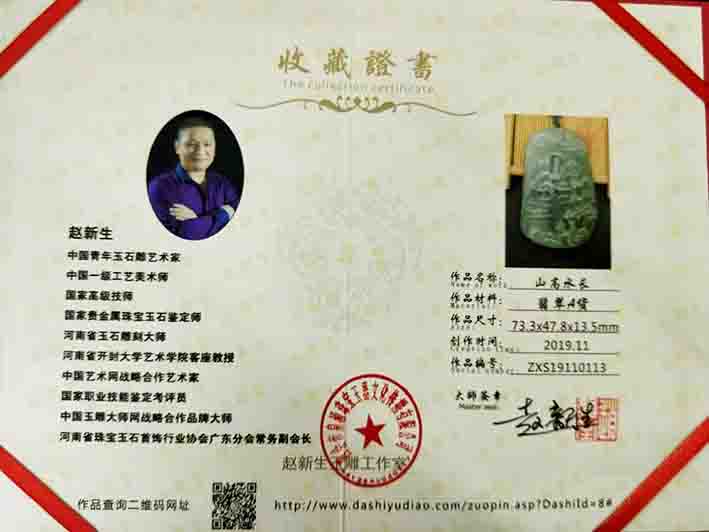 收藏證書
The collection certificate
赵新生
中国青年玉石雕艺术家
中国一级工艺美术师
国家高级技师
国家贵金属珠宝玉石鉴定师
河南省玉石雕刻大师
河南省开封大学艺术学院客座教授
中国艺术网战略合作艺术家
国家职业技能鉴定考评员
中国玉雕大师网战略合作品牌大师
河南省珠宝玉石首饰行业协会广东分会常务副会长
作品名称:
Name of work
山高水长
作品材料:
Material:
翡翠A货
作品尺寸:
Size:
73.3x47.8x13.5mm
创作时间:
Creation time:
2019.11
作品编号:
Serial number
ZXS19110113
大師签章
Master seal:
赵新生
赵新生玉雕工作室
作品查询二维码网址
http://www.dashiyudiao.com/zuopin.asp?DashiId=8#